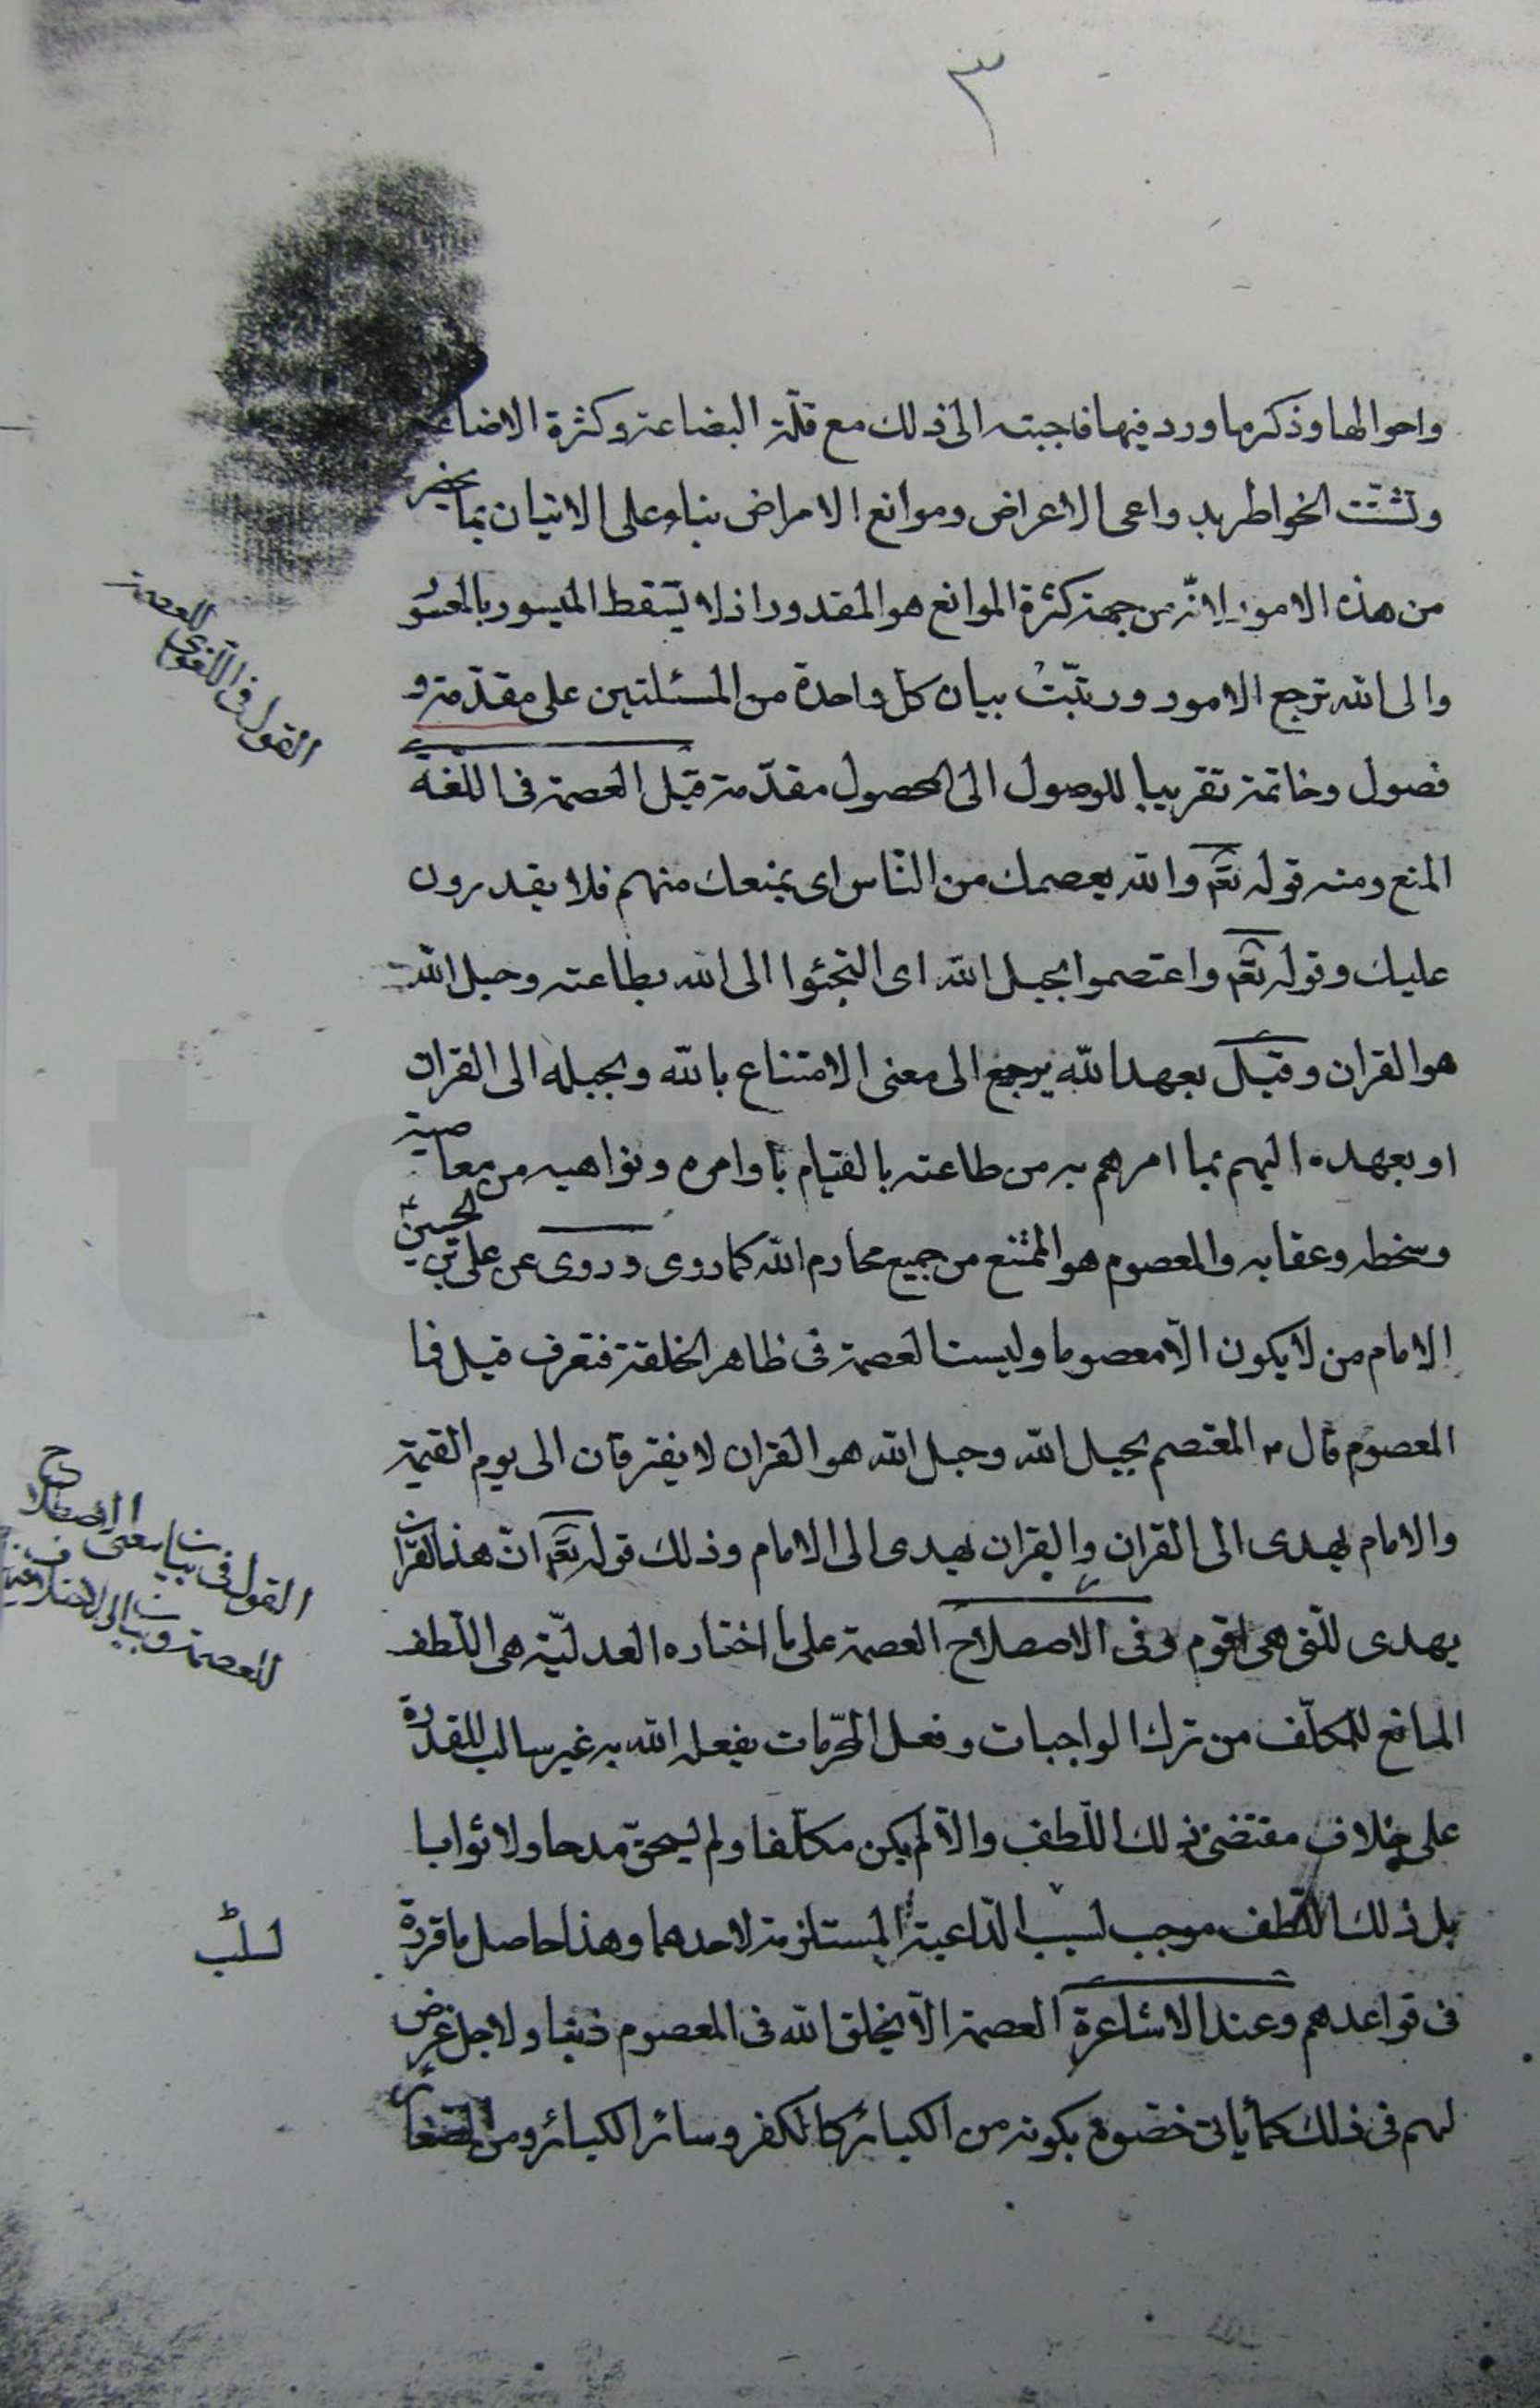 ٣
واحوالها وذكر ما ورد فيها فاجبته الى ذلك مع قلّة البضاعة وكثرة الاضاعة
وتشتّت الخواطر بدواعى الاعراض وموانع الامراض بناء على الاتيان بما يحضر
من هذه الامور لانّه من جهة كثرة الموانع هو المقدور اذ لا يسقط الميسور بالمعسور
والى الله ترجع الامور ورتبّت بيان كل واحدة من المسئلتين على مقدّمة و
فصول وخاتمة تقريبا للوصول الى المحصول مقدّمة قيل العصمة فى اللّغة
المنع ومنه قوله تعم والله يعصمك من النّاس اى يمنعك منهم فلا يقدرون
عليك وقوله تعم واعتصموا بحبل الله اى التجئوا الى الله بطاعته وحبل الله
هو القران وقيل بعهد الله يرجع الى معنى الامتناع بالله وبحبله الى القران
او بعهده اليهم بما امرهم به من طاعته بالقيام باوامره ونواهيه من معاصيه
وسخطه وعقابه والمعصوم هو الممتنع من جميع محارم الله كما روى وروى عن على بن الحسين ع
الامام من لا يكون الّا معصوما وليست العصمة فى ظاهر الخلقة فتعرف قيل فما
المعصوم قال ع المعتصم بحبل الله وحبل الله هو القران لا يفترقان الى يوم القيمة
والامام يهدى الى القران والقران يهدى الى الامام وذلك قوله تعم انّ هذا القران
يهدى للّتى هى اقوم وفى الاصطلاح العصمة على ما اختاره العدليّة هى اللّطف
المانع للمكلّف من ترك الواجبات وفعل المحرّمات يفعله الله به غير سالب للقدرة
على خلاف مقتضى ذلك اللّطف والّا لم يكن مكلّفا ولم يستحق مدحا ولا ثوابا
بل ذلك اللّطف موجب لسبب الدّاعية المستلزمة لاحدهما وهذا حاصل ما قرره
فى قواعدهم وعند الاشاعرة العصمة الّا يخلق الله فى المعصوم ذنبا ولاجل غرض
لهم فى ذلك كما يأتى خصّوه بكونه من الكبائر كالكفر وسائر الكبائر ومن الصّغائر
القول فى اللّغوى للعصمة
القول فى بيان معنى الاصطلاح
للعصمة وبيان
لسلب